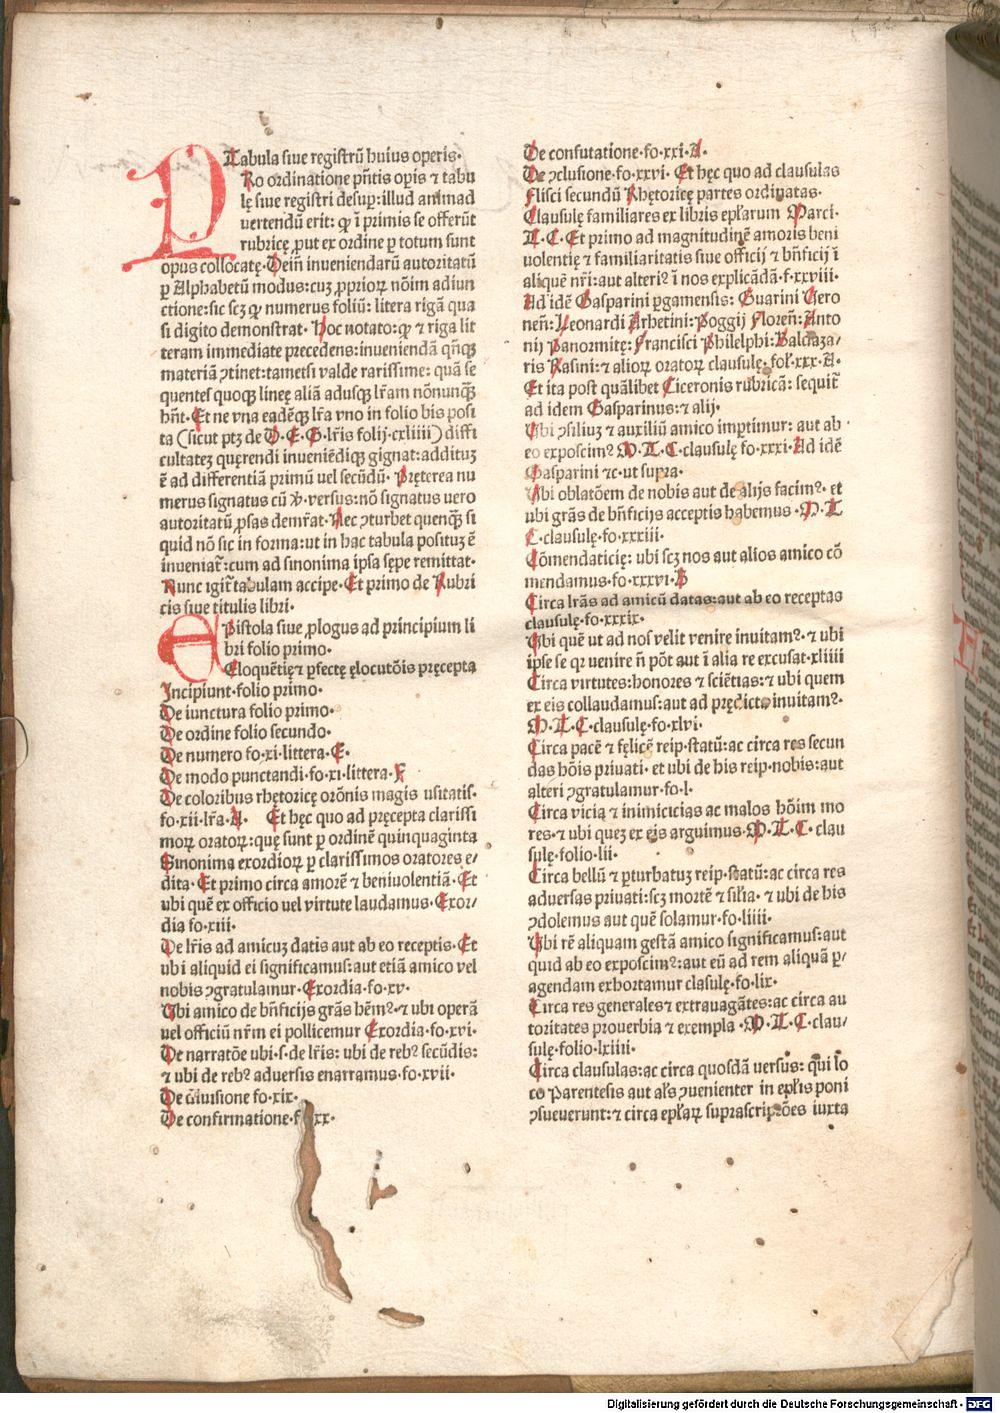 Tabula siue registrũ huius operis.
PRo ordinatione pñtis opis ⁊ tabu
lę siue registri desup: illud animad
uertendũ erit: ꝙ ĩ primis se offerũt
rubricę ꝓut ex ordine ꝑ totum sunt
opus collocatę. Deiñ inueniendarũ autoritatũ
ꝑ Alphabetũ modus: cuꝫ ꝓprioꝝ nõim adiun
ctione: sic scꝫ ꝙ numerus foliũ: litera rigã qua
si digito demonstrat. Hoc notato: ꝙ ⁊ riga lit
teram immediate precedens: inueniendã qñqꝫ
materiã ꝯtinet: tametsi valde rarissime: quã se
quentes quoqꝫ lineę aliã adusqꝫ lr̃am nõnunqꝫ
hñt. Et ne vna eadẽqꝫ lr̃a vno in folio bis posi
ta (sicut ptꝫ de D. E. G. lr̃is folij. cxliiii) diffi
cultateꝫ quęrendi inueniẽdiqꝫ gignat: addituꝫ
ẽ ad differentiã primũ uel secũdũ. Pręterea nu
merus signatus cũ ꝟ. versus: nõ signatus uero
autoritatũ ꝓsas demr̃at. Nec ꝯturbet quenqꝫ si
quid nõ sic in forma: ut in hac tabula posituꝫ ẽ
inueniat̃: cum ad sinonima ipsa sępe remittat.
Nunc igit̃ tabulam accipe. Et primo de Rubri
cis siue titulis libri.
EPistola siue ꝓlogus ad principium li
bri folio primo.
Eloquẽtię ⁊ ꝑfectę ęlocutõis pręcepta
Incipiunt. folio primo.
De iunctura folio primo.
De ordine folio secundo.
De numero fo. xi. littera. E.
De modo punctandi. fo. xi. littera. F
De coloribus rhętoricę orõnis magis usitatis.
fo. xii. lr̃a. A. Et hęc quo ad pręcepta clarissi
moꝝ oratoꝝ: quę sunt ꝑ ordinẽ quinquaginta
Sinonima exordioꝝ ꝑ clarissimos oratores e/
dita. Et primo circa amorẽ ⁊ beniuolentiã. Et
ubi quẽ ex officio uel virtute laudamus. Exor/
dia fo. xiii.
De lr̃is ad amicuꝫ datis aut ab eo receptis. Et
ubi aliquid ei significamus: aut etiã amico vel
nobis ꝯgratulamur. Exordia. fo. xv.
Ubi amico de bñficijs grãs hẽmꝰ. ⁊ ubi operã
uel officiũ nr̃m ei pollicemur Exordia. fo. xvi.
De narratõe ubi. s. de lr̃is: ubi de rebꝰ secũdis:
⁊ ubi de rebꝰ aduersis enarramus. fo. xvii.
De diuisione fo. xix.
De confirmatione. fo. xx.
De confutatione. fo. xxi. A.
De ꝯclusione. fo. xxvi. Et hęc quo ad clausulas
Flisci secundũ Rhętoricę partes ordinatas.
Clausulę familiares ex libris epl̃arum Marci.
T. C. Et primo ad magnitudinẽ amoris beni
uolentię ⁊ familiaritatis siue officij ⁊ bñficij ĩ
aliquẽ nr̃i: aut alteriꝰ ĩ nos explicãdã. f. xxviii.
Ad idẽ Gasparini ꝑgamensis: Guarini Uero
neñ: Leonardi Arhetini: Poggij Floreñ: Anto
nij Panormitę: Francisci Philelphi: Baldaza/
ris Rasini: ⁊ alioꝝ oratoꝝ clausulę. fol. xxx. A.
Et ita post quãlibet Ciceronis rubricã: sequit̃
ad idem Gasparinus: ⁊ alij.
Ubi ꝯsiliuꝫ ⁊ auxiliũ amico imptimur: aut ab
eo exposcimꝰ M. T. C. clausulę fo. xxxi. Ad idẽ
Gasparini ⁊c. ut supra.
Ubi oblatõem de nobis aut de alijs facimꝰ. et
ubi grãs de bñficijs acceptis habemus. M. T
C. clausulę. fo. xxxiii.
Cõmendaticię: ubi scꝫ nos aut alios amico cõ
mendamus. fo. xxxvi. B
Circa lr̃as ad amicũ datas: aut ab eo receptas
clausulę. fo. xxxix.
Ubi quẽ ut ad nos velit venire inuitamꝰ. ⁊ ubi
ipse se qr venire ñ põt aut ĩ alia re excusat. xliiii
Circa virtutes: honores ⁊ sciẽtias: ⁊ ubi quem
ex eis collaudamus: aut ad prędicta inuitamꝰ.
M. T. C. clausulę. fo. xlvi.
Circa pacẽ ⁊ fęlicẽ reip. statũ: ac circa res secun
das hõis priuati. et ubi de his reip. nobis: aut
alteri ꝯgratulamur. fo. l.
Circa vicia ⁊ inimicicias ac malos hõim mo
res. ⁊ ubi queꝫ ex eis arguimus. M. T. C. clau
sulę. folio. lii.
Circa bellũ ⁊ ꝑturbatuꝫ reip. statũ: ac circa res
aduersas priuati: scꝫ mortẽ ⁊ sil̃ia. ⁊ ubi de his
ꝯdolemus aut quẽ solamur. fo. liiii.
Ubi rẽ aliquam gestã amico significamus: aut
quid ab eo exposcimꝰ: aut eũ ad rem aliquã ꝑ/
agendam exhortamur clasulę. fo. lix.
Circa res generales ⁊ extrauagãtes: ac circa au
toritates prouerbia ⁊ exempla. M. T. C. clau/
sulę. folio. lxiiii.
Circa clausulas: ac circa quosdã uersus: qui lo
co Parentesis aut al̃s ꝯuenienter in epl̃is poni
ꝯsueuerunt: ⁊ circa epl̃aꝝ suprascriptões iuxta
Digitalisierung gefördert durch die Deutsche Forschungsgemeinschaft - DFG